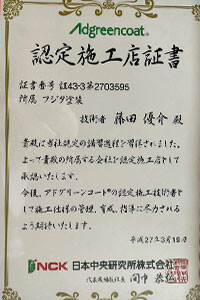 Adgreencoat®
認定施工店証書
証書番号 証43-3第2703595
所属 フジタ塗装
技術者 藤田 優介 殿
貴殿は当社認定の講習過程を習得されました。
よって貴殿の所属する会社を認定施工店として
承認いたします。
今後、アドグリーンコート®の認定施工技術者と
して施工仕様の管理、育成、指導に尽力される
よう期待いたします。
平成27年3月19日
NCK 日本中央研究所株式会社
代表取締役社長 間中